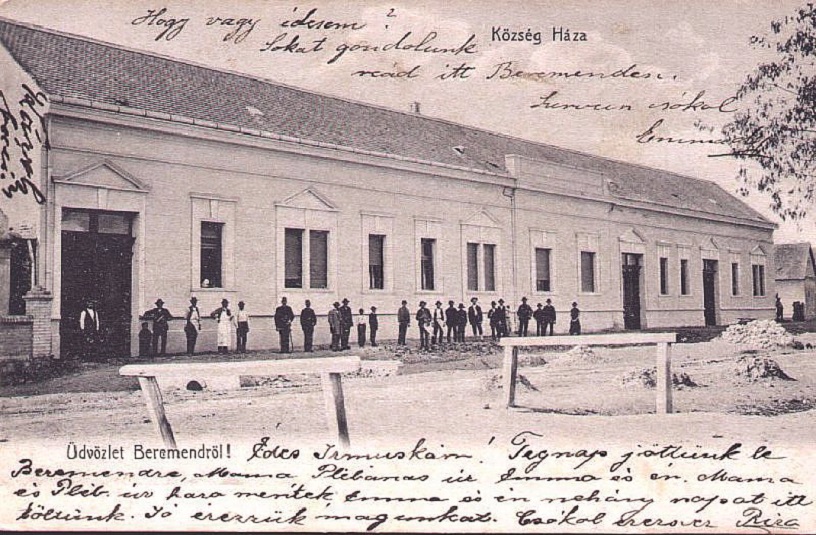 Hogy vagy édesem?
Sokat gondolunk
read itt Beremenden.
csókol
Emma
Község Háza
Károly
Üdvözlet Beremendröl!
Édes Irmuskám! Tegnap jöttünk le
Beremendre, Mama Plébanas úr Emma és én. Mama
és Pléb. úr haza mentek Emma és én nehány napot itt
töltünk. Jó érezzük magunkat. Csókol szerver Riza